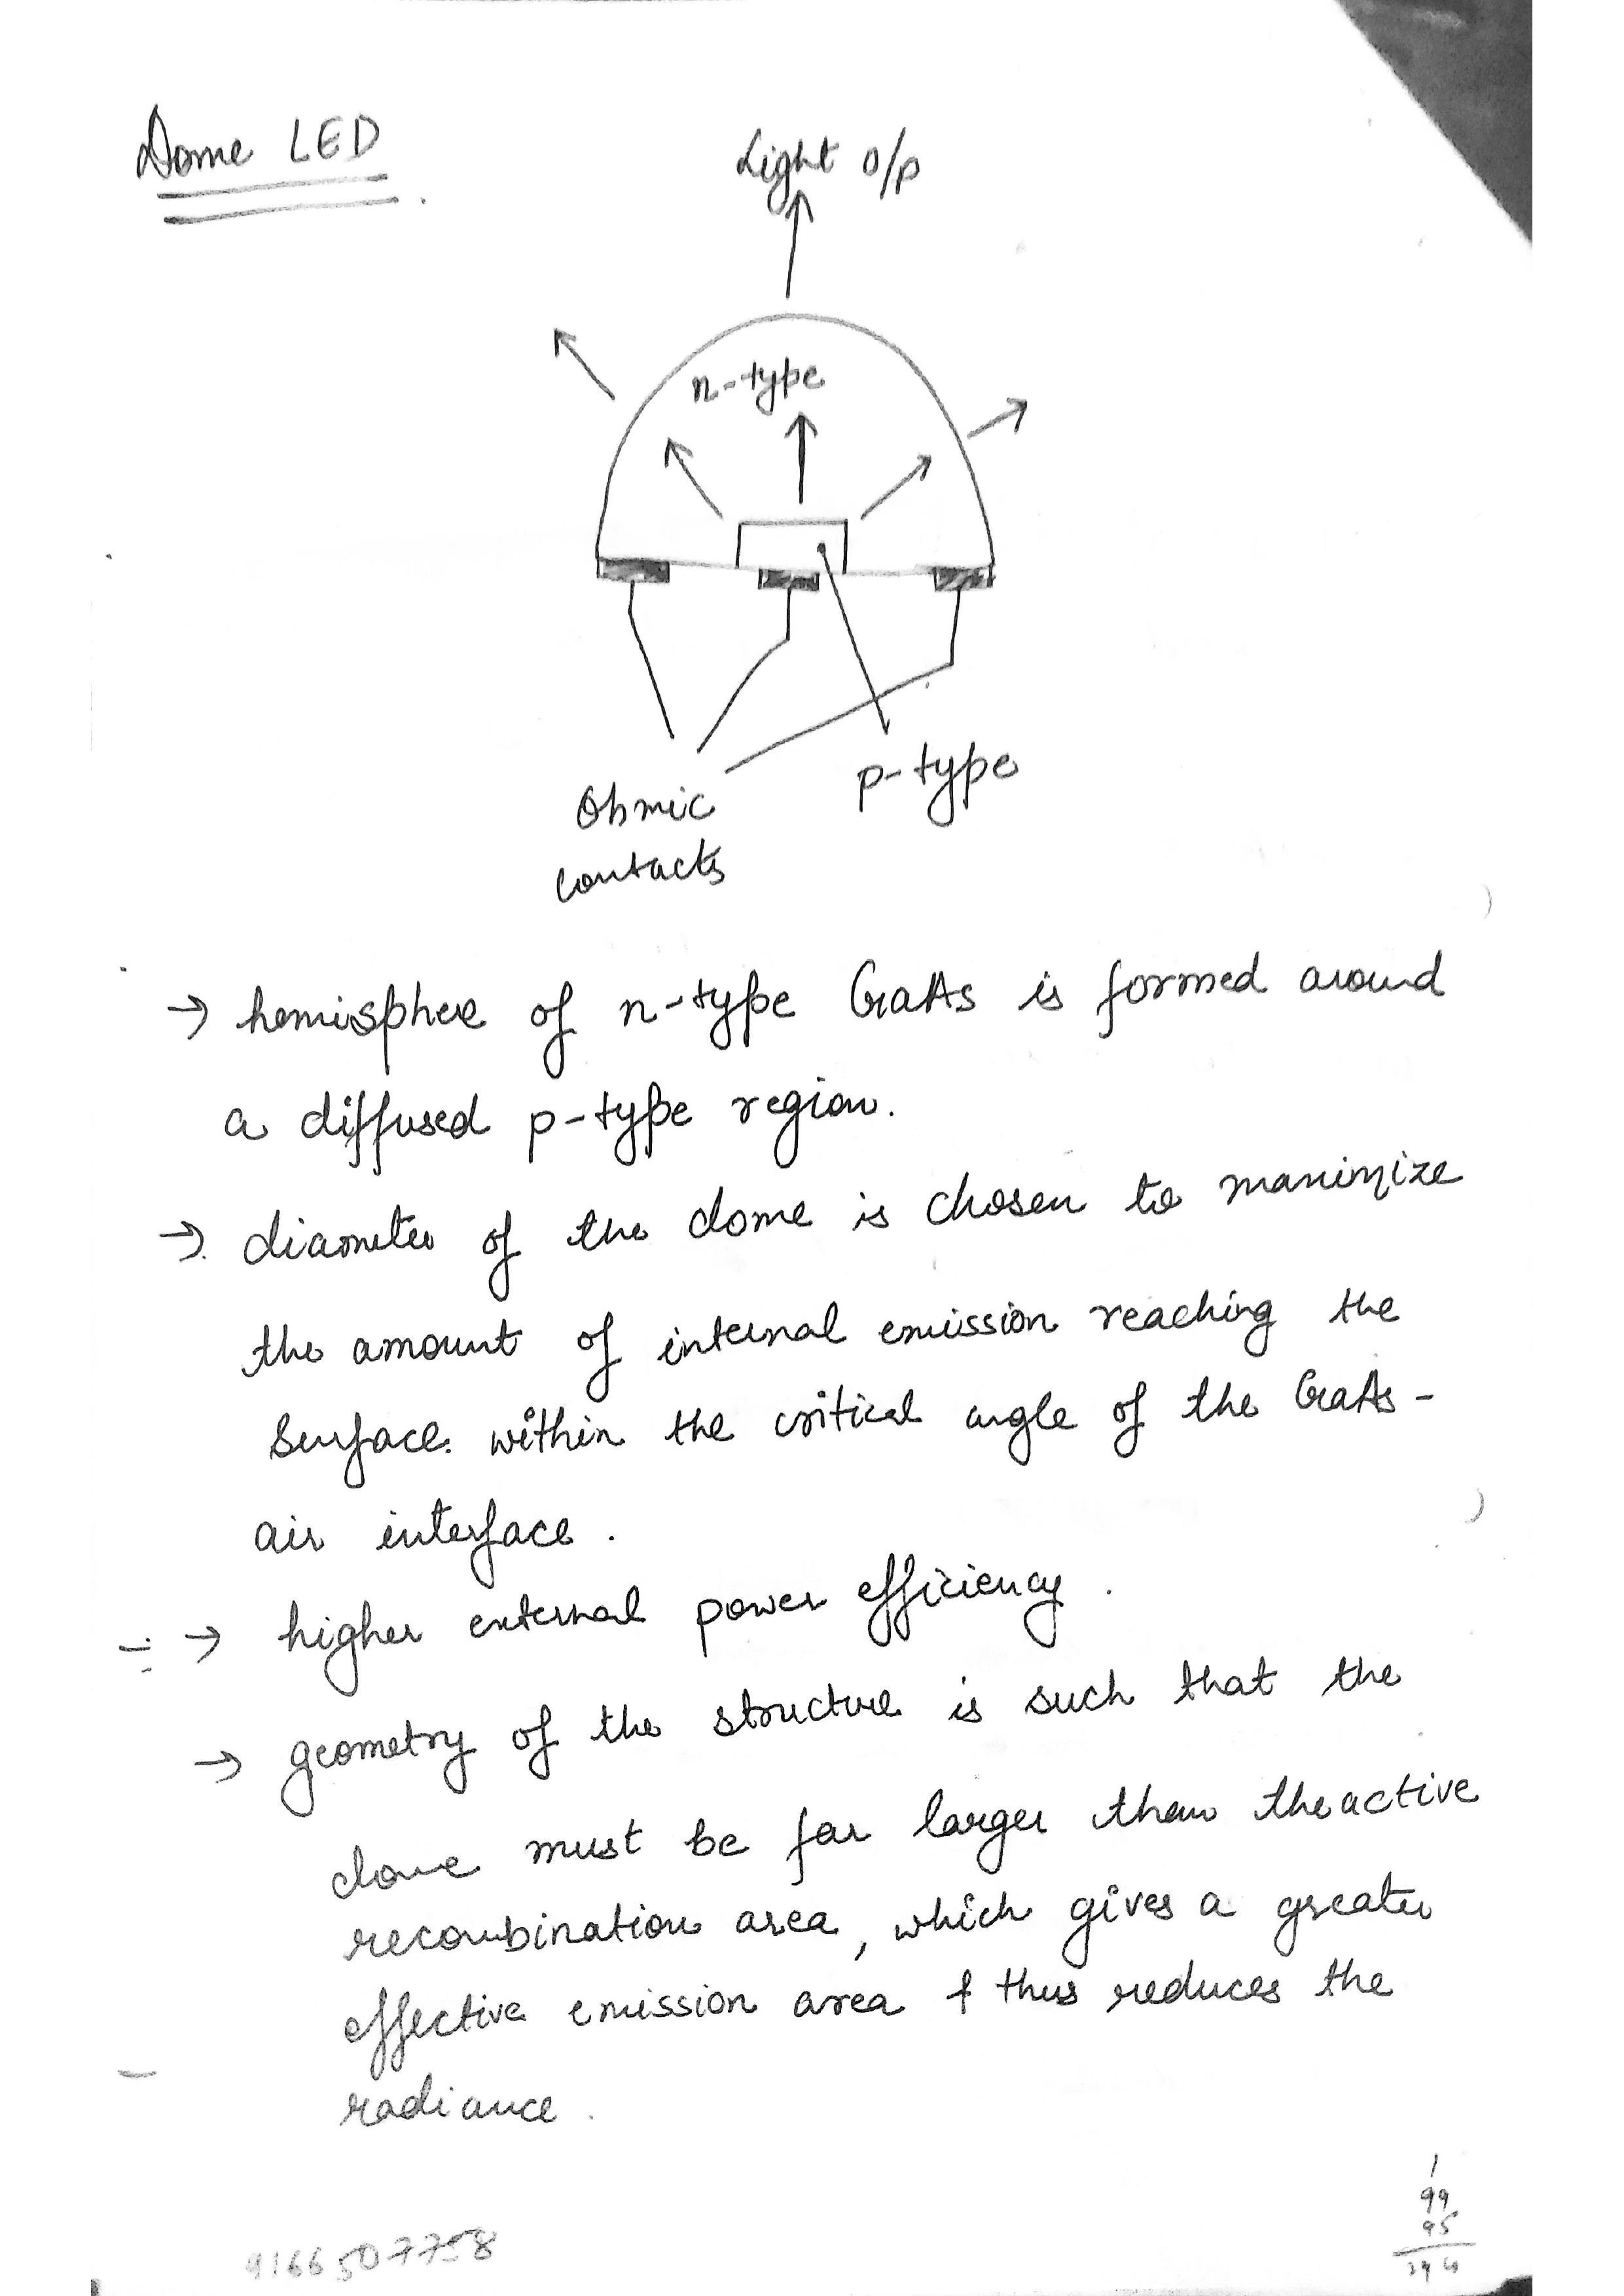 Dome LED
Light o/p
n-type
p-type
Ohmic
contacts
→ hemisphere of n-type GaAs is formed around
a diffused p-type region.
→ diameter of the dome is chosen to maximize
the amount of internal emission reaching the
surface within the critical angle of the GaAs-
air interface.
→ higher external power efficiency.
→ geometry of the structure is such that the
dome must be far larger than the active
recombination area, which gives a greater
effective emission area & thus reduces the
radiance.
1
99
95
194